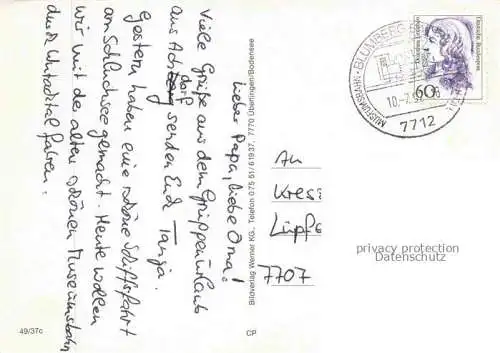 Liebe Papa, liebe Oma!
Viele Grüße aus dem Gruppenurlaub
aus Achdorf senden Euch Tanja.
Gestern haben eine schöne Schiffsfahrt
am Schluchsee gemacht. Heute wollen
wir mit der alten schönen Museumsbahn
durch Wutachtal fahren.
Bildverlag Werner KG, Telefon 0 75 51/6 19 37, 7770 Überlingen/Bodensee
An
Kres
Lüpfe
7707
MUSEUMSBAHN · BLUMBERG
10.-7.
7712
Deutsche Bundespost
60
privacy protection
Datenschutz
49/37c
CP